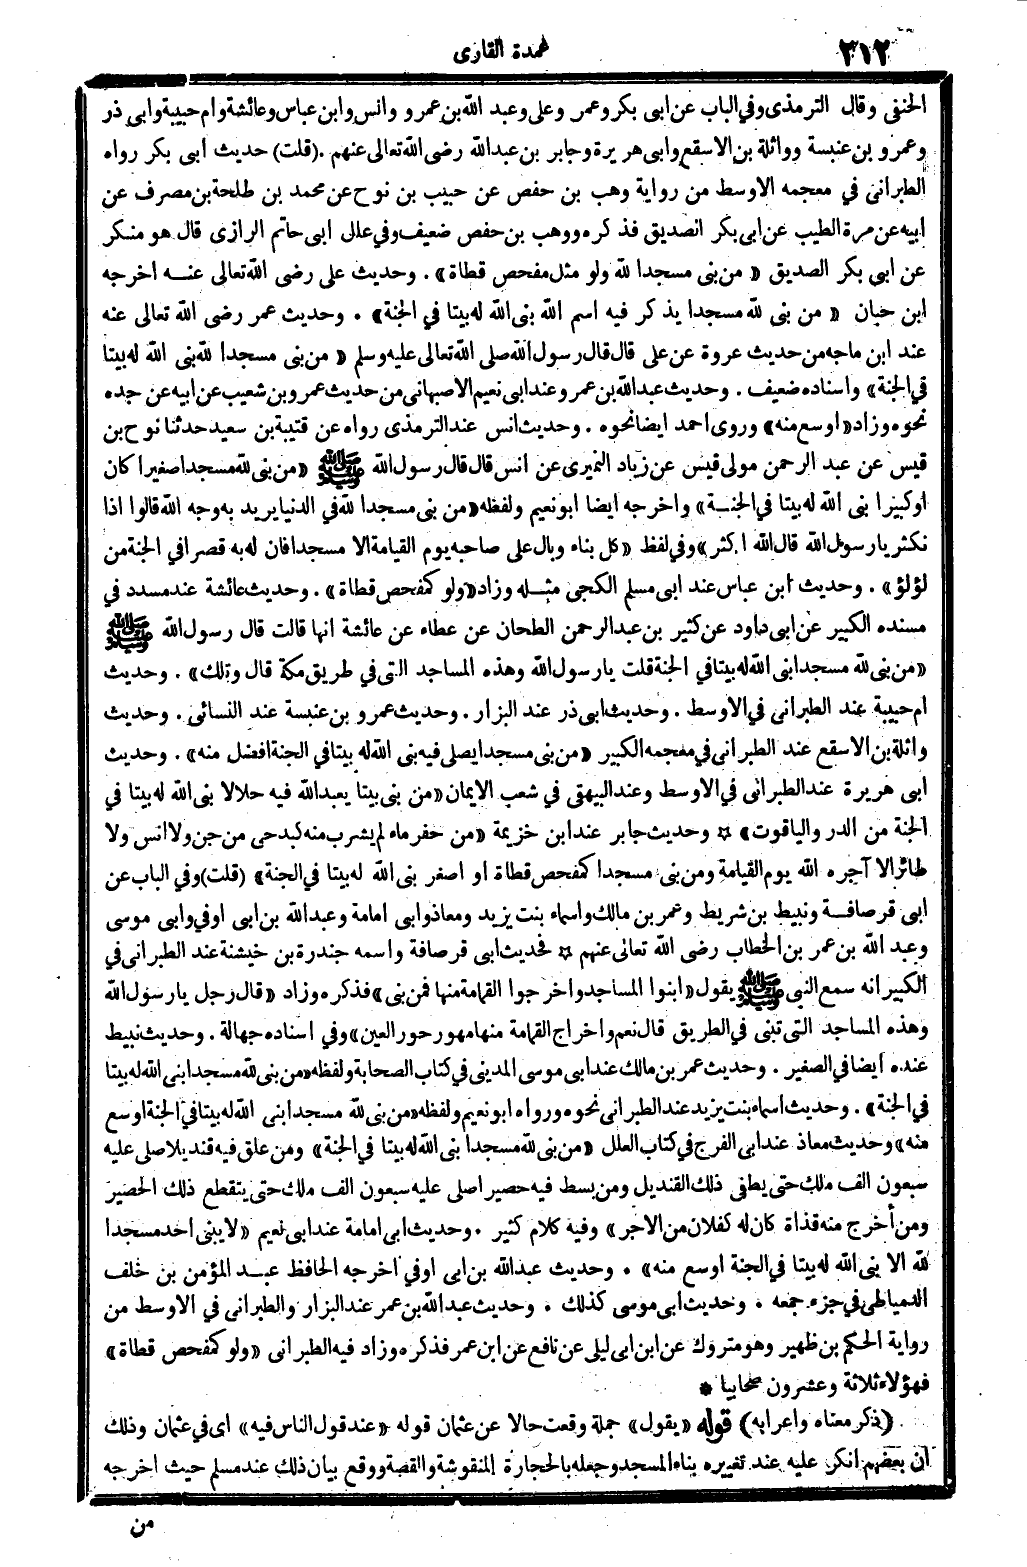 ٣١٢
عمدة القارى
الحنفى وقال الترمذى وفى الباب عن ابى بكر وعمر وعلى وعبد الله بن عمرو وانس وابن عباس وعائشة وام حبيبة وابى ذر
وعمرو بن عنبسة وواثلة بن الاسقع وابى هريرة وجابر بن عبدالله رضى الله تعالى عنهم . (قلت) حديث ابى بكر رواه
الطبرانى في معجمه الاوسط من رواية وهب بن حفص عن حبيب بن نوح عن محمد بن طلحة بن مصرف عن
ابيه عن مرة الطيب عن ابى بكر الصديق فذكره ووهب بن حفص ضعيف وفي علل ابى حاتم الرازى قال هو منكر
عن ابى بكر الصديق «من بنى مسجدا لله ولو مثل مفحص قطاة» . وحديث على رضى الله تعالى عنه اخرجه
ابن حبان «من بنى لله مسجدا يذكر فيه اسم الله بنى الله له بيتا في الجنة» . وحديث عمر رضى الله تعالى عنه
عند ابن ماجه من حديث عروة عن على قال قال رسول الله صلى الله تعالى عليه وسلم «من بنى مسجدا لله بنى الله له بيتا
في الجنة» واسناده ضعيف . وحديث عبدالله بن عمرو عند ابى نعيم الاصبهانى من حديث عمرو بن شعيب عن ابيه عن جده
نحوه وزاد «اوسع منه» وروى احمد ايضا نحوه . وحديث انس عند الترمذى رواه عن قتيبة بن سعيد حدثنا نوح بن
قيس عن عبد الرحمن مولى قيس عن زياد النميرى عن انس قال قال رسول الله ﷺ «من بنى لله مسجدا صغيرا كان
او كبيرا بنى الله له بيتا في الجنة» واخرجه ايضا ابو نعيم ولفظه «من بنى مسجدا لله في الدنيا يريد به وجه الله قالوا اذا
نكثر يا رسول الله قال الله اكثر» وفي لفظ «كل بناء وبال على صاحبه يوم القيامة الا مسجدا فان له به قصرا في الجنة من
لؤلؤ» . وحديث ابن عباس عند ابى مسلم الكجى مثله وزاد «ولو كمفحص قطاة» . وحديث عائشة عند مسدد في
مسنده الكبير عن ابى داود عن كثير بن عبدالرحمن الطحان عن عطاء عن عائشة انها قالت قال رسول الله ﷺ
«من بنى لله مسجدا بنى الله له بيتا في الجنة قلت يا رسول الله وهذه المساجد التى في طريق مكة قال وتلك» . وحديث
ام حبيبة عند الطبرانى في الاوسط . وحديث ابى ذر عند البزار . وحديث عمرو بن عنبسة عند النسائى . وحديث
واثلة بن الاسقع عند الطبرانى في معجمه الكبير «من بنى مسجدا يصلى فيه بنى الله له بيتا في الجنة افضل منه» . وحديث
ابى هريرة عند الطبرانى في الاوسط وعند البيهقى في شعب الايمان «من بنى بيتا يعبد الله فيه حلالا بنى الله له بيتا في
الجنة من الدر والياقوت» ¤ وحديث جابر عند ابن خزيمة «من حفر ماء لم يشرب منه كبد حى من جن ولا انس ولا
طائر الا آجره الله يوم القيامة ومن بنى مسجدا كمفحص قطاة او اصغر بنى الله له بيتا في الجنة» (قلت) وفي الباب عن
ابى قرصافة ونبيط بن شريط وعمر بن مالك واسماء بنت يزيد ومعاذ وابى امامة وعبد الله بن ابى اوفي وابى موسى
وعبد الله بن عمر بن الخطاب رضى الله تعالى عنهم ¤ فحديث ابى قرصافة واسمه جندرة بن خيشنة عند الطبرانى في
الكبير انه سمع النبى ﷺ يقول «ابنوا المساجد واخرجوا القمامة منها فمن بنى» فذكره وزاد «قال رجل يا رسول الله
وهذه المساجد التى تبنى في الطريق قال نعم واخراج القمامة منها مهور حور العين» وفي اسناده جهالة . وحديث نبيط
عنده ايضا في الصغير . وحديث عمر بن مالك عند ابى موسى المدينى في كتاب الصحابة ولفظه «من بنى لله مسجدا بنى الله له بيتا
في الجنة» . وحديث اسماء بنت يزيد عند الطبرانى نحوه ورواه ابو نعيم ولفظه «من بنى لله مسجدا بنى الله له بيتا في الجنة اوسع
منه» وحديث معاذ عند ابى الفرج في كتاب العلل «من بنى لله مسجدا بنى الله له بيتا في الجنة» ومن علق فيه قنديلا صلى عليه
سبعون الف ملك حتى يطفى ذلك القنديل ومن بسط فيه حصيرا صلى عليه سبعون الف ملك حتى يتقطع ذلك الحصير
ومن أخرج منه قذاة كان له كفلان من الاجر» وفيه كلام كثير . وحديث ابى امامة عند ابى نعيم «لا يبنى احد مسجدا
لله الا بنى الله له بيتا في الجنة اوسع منه» . وحديث عبدالله بن ابى اوفي اخرجه الحافظ عبد المؤمن بن خلف
الدمياطى في جزء جمعه . وحديث ابى موسى كذلك . وحديث عبدالله بن عمر عند البزار والطبرانى في الاوسط من
رواية الحكم بن ظهير وهو متروك عن ابن ابى ليلى عن نافع عن ابن عمر فذكره وزاد فيه الطبرانى «ولو كمفحص قطاة»
فهؤلاء ثلاثة وعشرون صحابيا *
(ذكر معناه واعرابه) قوله «يقول» جملة وقعت حالا عن عثمان قوله «عند قول الناس فيه» اى في عثمان وذلك
أن بعضهم انكر عليه عند تغييره بناء المسجد وجعله بالحجارة المنقوشة والقصة ووقع بيان ذلك عند مسلم حيث اخرجه
من